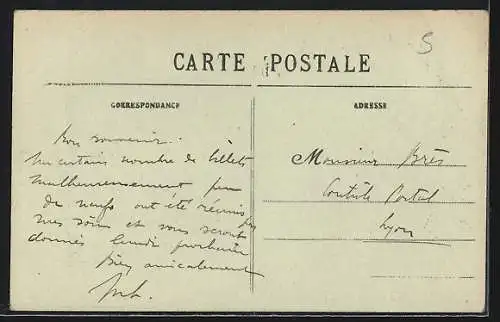 CARTE POSTALE
CORRESPONDANCE
ADRESSE
S
Bon souvenir.
Un certain nombre de billets
malheureusement peu
de neufs ont été réunis par
mes soins et vous seront
donnés lundi prochain
Bien amicalement
Monsieur Brès
Contrôle Postal
Lyon